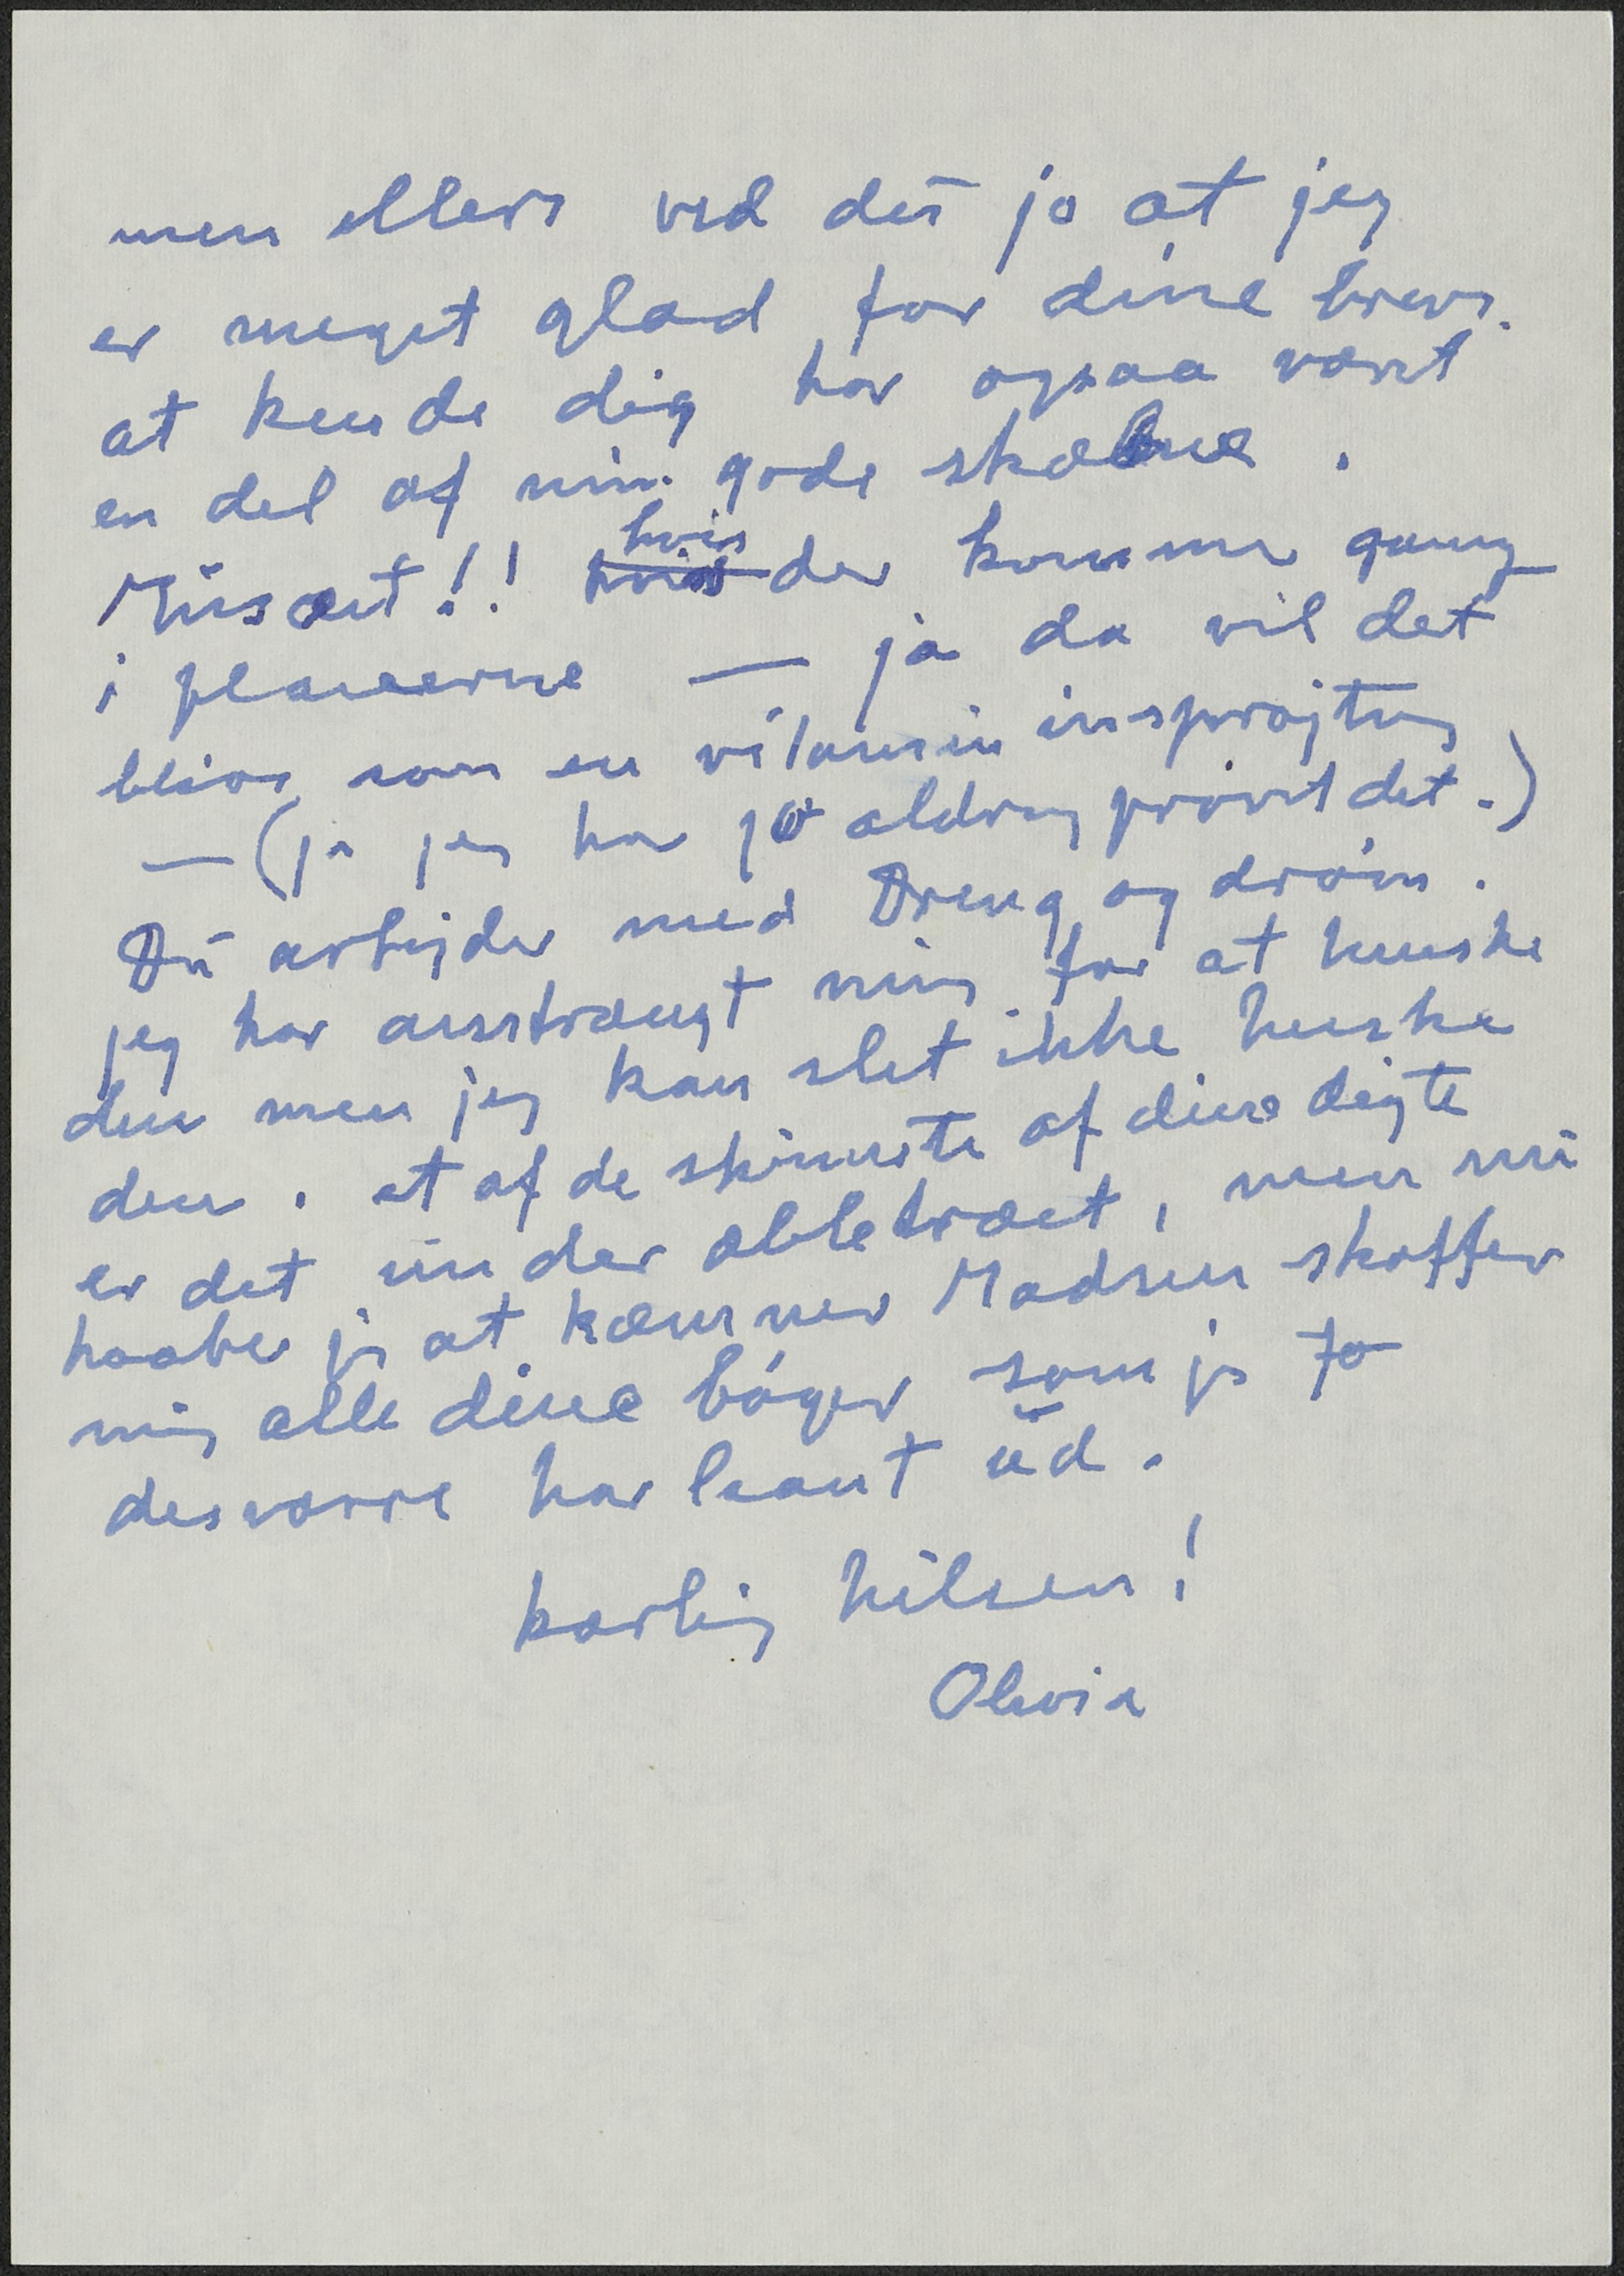 men ellers ved dū jo at jeg
er meget glad for dine breve.
at kende dig har ogsaa været
en del af min gode skæbne.
Müsæet!! hvis der kommer gang
i planerne — ja da vil det
blive som en vitamin insprøjtning
— (ja jeg har jo aldrig prøvet det.)
Dū arbejder med Dreng og drøm.
jeg har anstrængt mig for at huuske
den men jeg kan slet ikke huske
den. et af de skønneste af dine digte
er det ūnder æbletræet, men nū
haaber jeg at kæmner Madsen skaffer
mig alle dine bøger som jeg jo
desværre har laant ūd.
kærlig hilsen!
Olivia